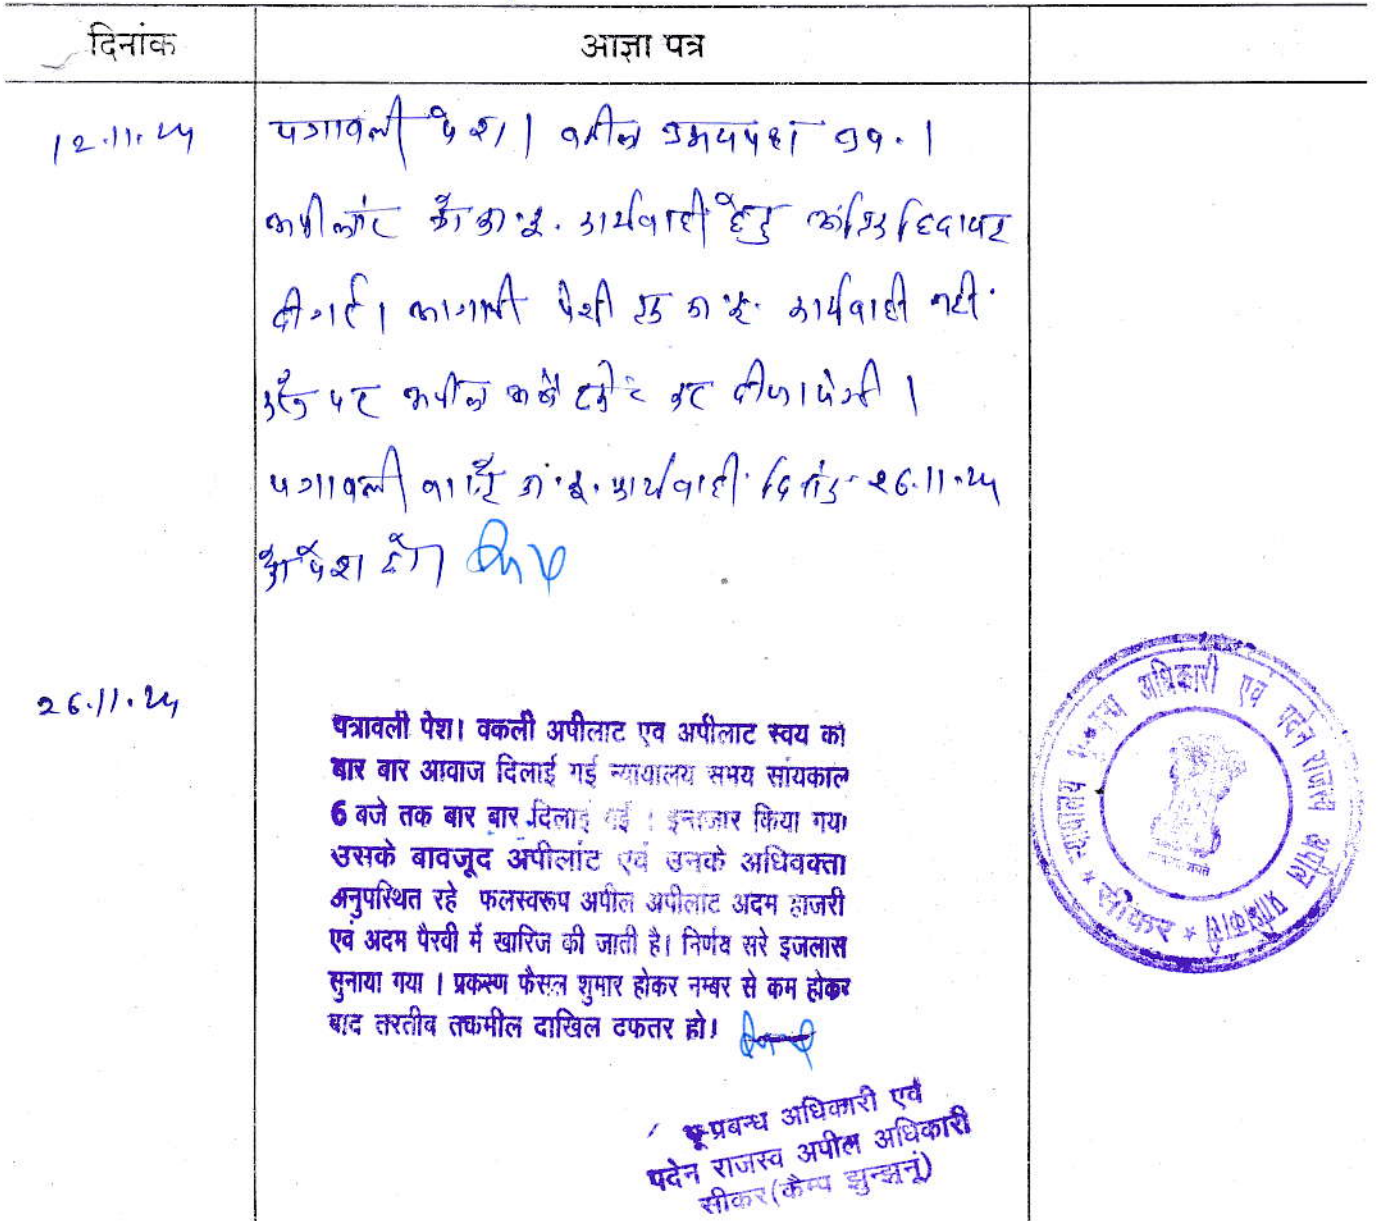 दिनांक
आज्ञा पत्र
12.11.24
पत्रावली पेश। वकील उभयपक्ष उप.।
अपीलांट को आ.इ. कार्यवाही हेतु अंतिम हिदायत
दी गई। आगामी पेशी तक आ.इ. कार्यवाही नहीं
करने पर अपील अबेट कर दी जायेगी।
पत्रावली वास्ते आ.इ. कार्यवाही दिनांक 26.11.24
को पेश हो।
26.11.24
पत्रावली पेश। वकली अपीलाट एव अपीलाट स्वय को
बार बार आवाज दिलाई गई न्यायालय समय सांयकाल
6 बजे तक बार बार दिलाई गई । इन्तजार किया गया
उसके बावजूद अपीलांट एवं उनके अधिवक्ता
अनुपस्थित रहे फलस्वरूप अपील अपीलाट अदम हाजरी
एवं अदम पैरवी में खारिज की जाती है। निर्णय सरे इजलास
सुनाया गया । प्रकरण फैसल शुमार होकर नम्बर से कम होकर
बाद तरतीब तकमील दाखिल दफतर हो।
भू-प्रबन्ध अधिकारी एवं
पदेन राजस्व अपील अधिकारी
सीकर(कैम्प झुन्झुनूं)
न्यायालय भू-प्रबन्ध अधिकारी एवं पदेन राजस्व अपील प्राधिकारी
* सीकर *